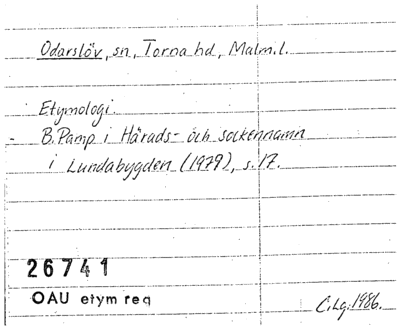 Odarslöv, sn, Torna hd, Malm.l.
Etymologi.
B. Pamp i Härads- och sockennamn
i Lundabygden (1979), s. 17.
26741
OAU etym req
C. Lg. 1986.